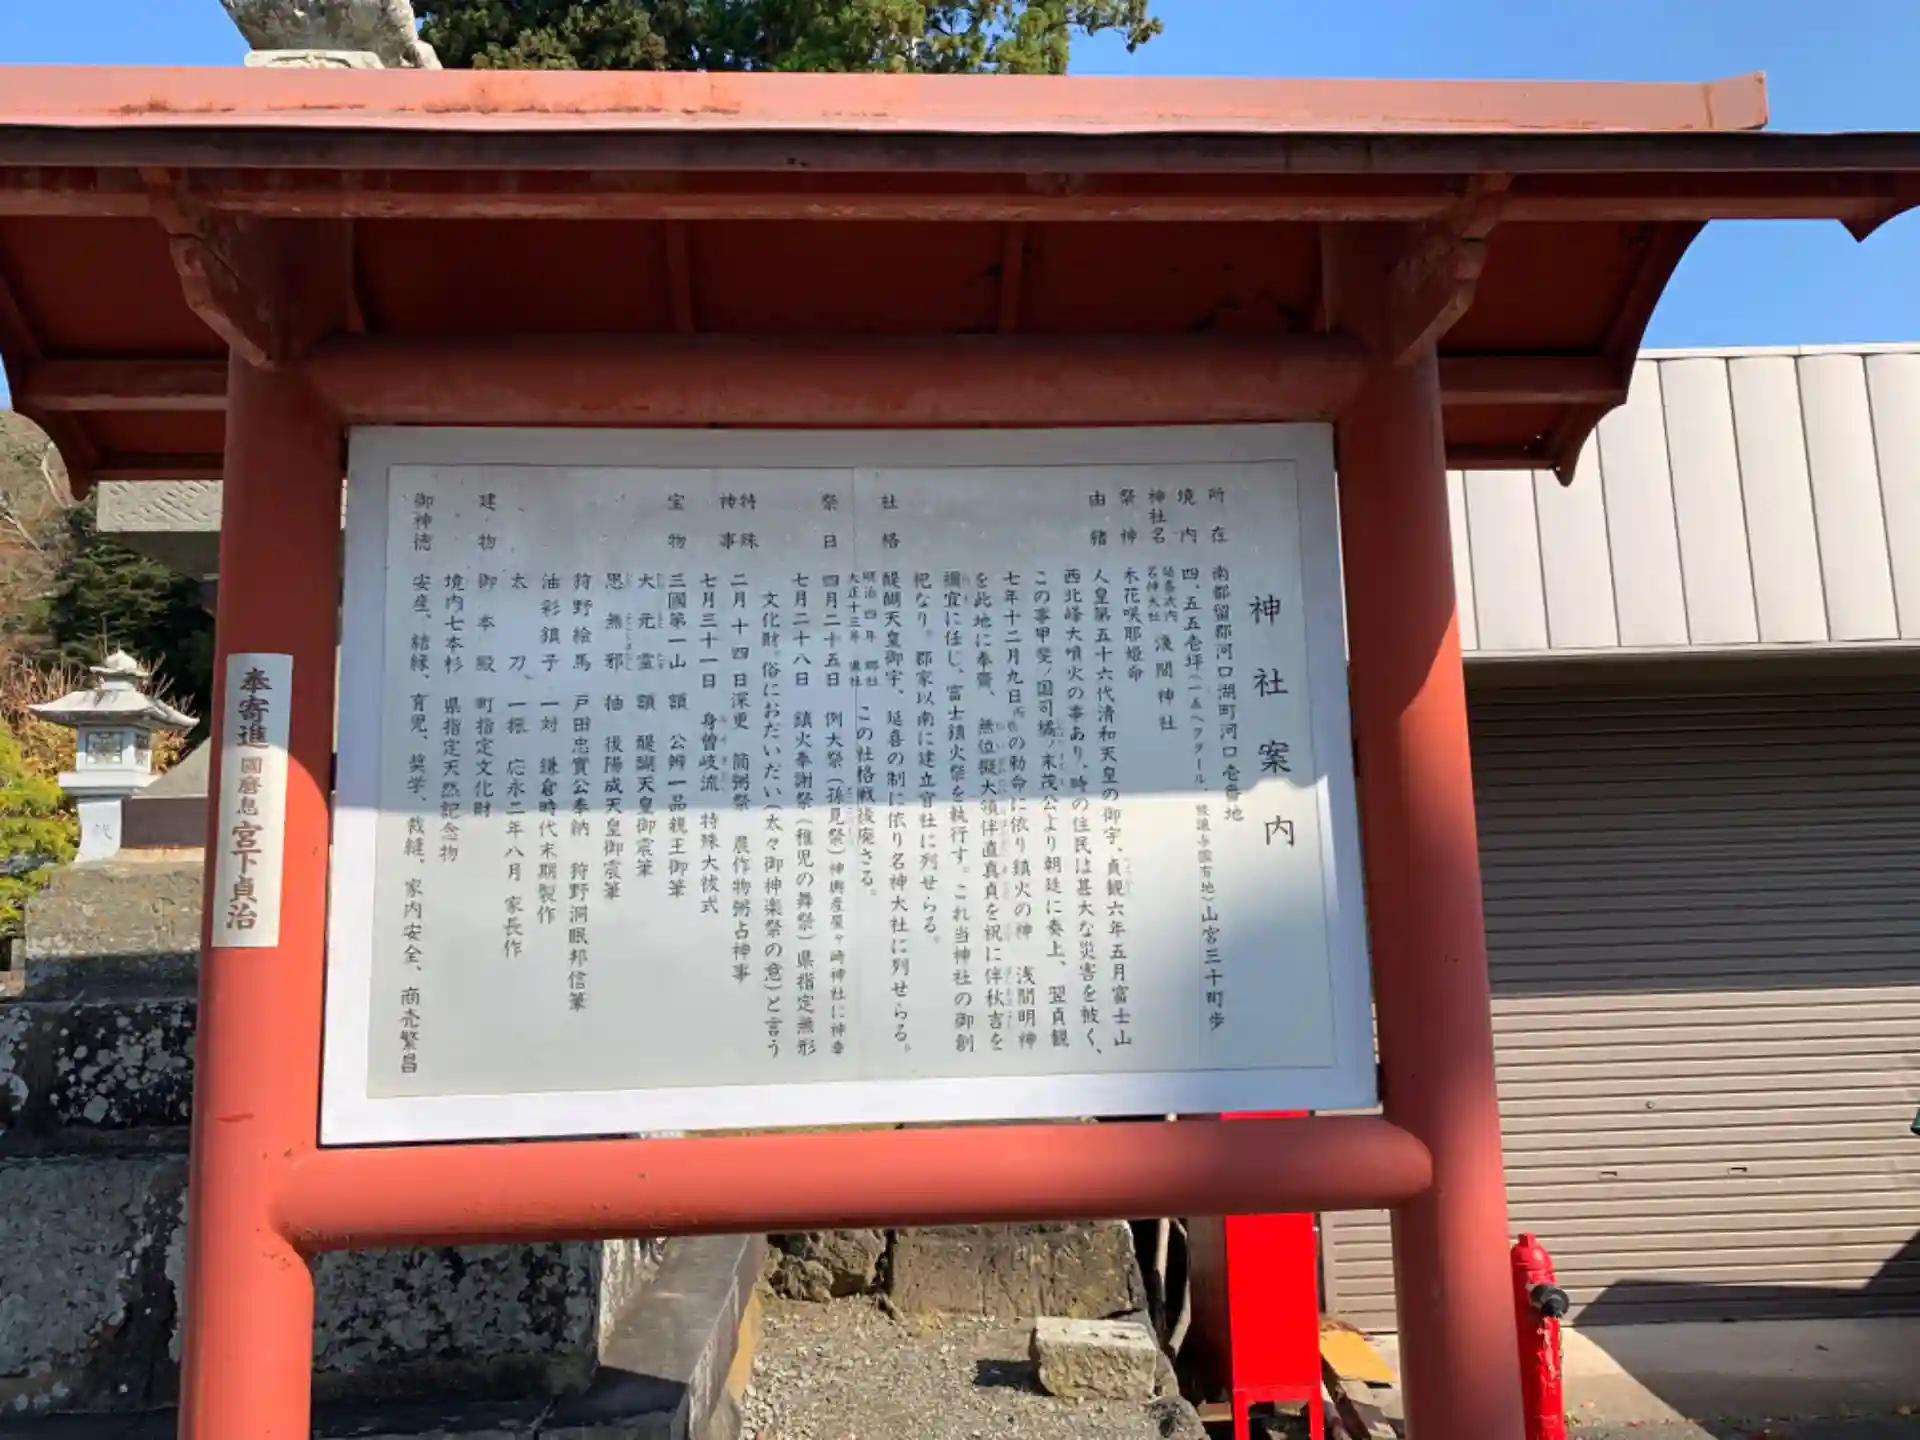 神社案内
所在 南都留郡河口湖町河口壱番地
境内 四、五五壱坪(一・五ヘクタール、譲与国有地)山宮三十町歩
神社名 延喜式内名神大社 浅間神社
祭神 木花咲耶姫命
由緒 人皇第五十六代清和天皇の御宇、貞観六年五月富士山
西北峰大噴火の事あり、時の住民は甚大な災害を被く、
この事甲斐ノ国司橘ノ末茂公より朝廷に奏上、翌貞観
七年十二月九日丙辰の勅命に依り鎮火の神 浅間明神
を此地に奉齋、無位擬大領伴直真貞を祝に伴秋吉を
禰宜に任じ、富士鎮火祭を執行す。これ当神社の御創
祀なり。郡家以南に建立官社に列せらる。
社格 醍醐天皇御宇、延喜の制に依り名神大社に列せらる。
明治四年 郷社
大正十三年 県社 この社格戦後廃さる。
祭日 四月二十五日 例大祭(孫見祭)神輿産屋ヶ崎神社に神幸
七月二十八日 鎮火奉謝祭(稚児の舞祭)県指定無形
文化財。俗におだいだい(太々御神楽祭の意)と言う
特殊神事 二月十四日深更 筒粥祭 農作物粥占神事
七月三十一日 身曽岐流 特殊大祓式
宝物 三國第一山 額 公辨一品親王御筆
大元霊 額 醍醐天皇御宸筆
思無邪 抽 後陽成天皇御宸筆
狩野絵馬 戸田忠實公奉納 狩野洞眠邦信筆
油彩鎮子 一対 鎌倉時代末期製作
太刀、一振 応永二年八月 家長作
建物 御本殿 町指定文化財
境内七本杉 県指定天然記念物
御神徳 安産、結縁、育児、奨学、裁縫、家内安全、商売繁昌
奉寄進 國磨息 宮下貞治